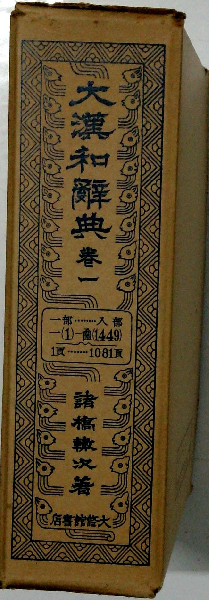 大漢和辭典 卷一
一部………人部
一(1)―　(1449)
1頁………1081頁
諸橋轍次著
大修館書店